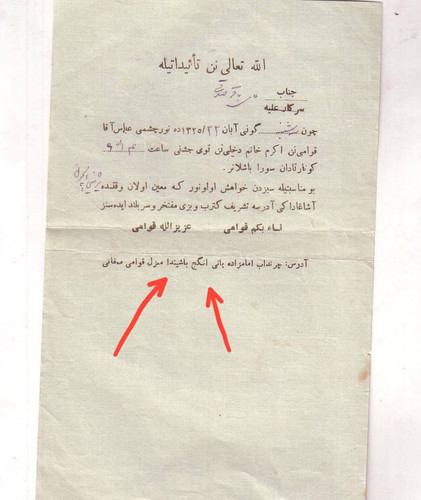 الله تعالی نن تأئیداتیله
جناب
سرکار علیه
چون سه شنبه گونی آبان ۱۳۲۵/۲۲ ده نورچشمی عباس آقا
قوامی نن اکرم خانم دخیلی نن توی جشنی ساعت
کونارتادان سورا باشلانر.
بو مناسبتیله سیزدن خواهش اولونور که معین اولان وقتده
آشاغادا کی آدرسه تشریف گترب و بزی مفتخر و سر بلند ایده سنز
نساء بکم قوامی عزیزالله قوامی
آدرس: چرنداب امامزاده یانی انگج باشیندا منزل قوامی ممقانی